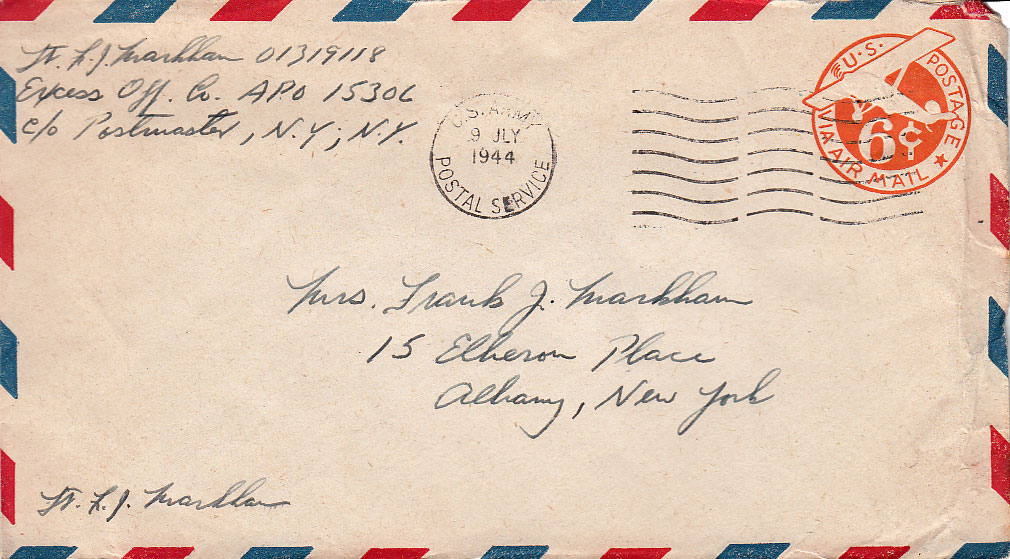 Lt. F. J. Markham 01319118
Excess Off. Co. APO 15306
c/o Postmaster, N.Y., N.Y.
U.S. ARMY
9 JLY
1944
POSTAL SERVICE
U.S. POSTAGE
6¢
VIA AIR MAIL
Mrs. Frank J. Markham
15 Elberon Place
Albany, New York
Lt. F. J. Markham